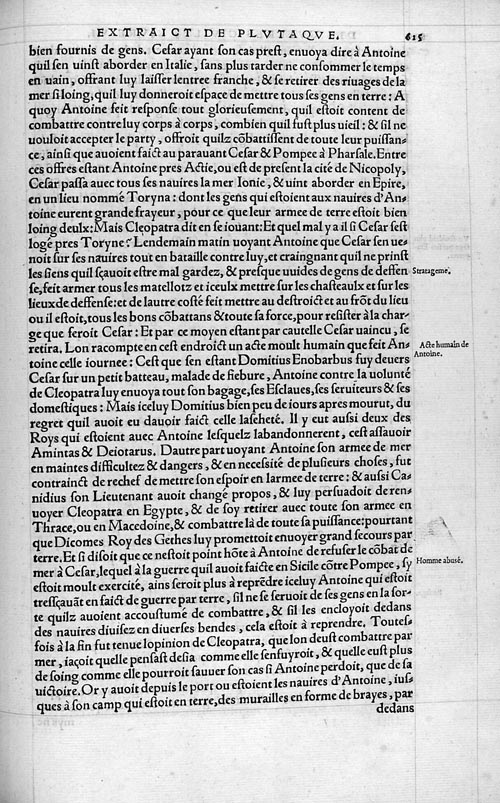 EXTRAICT DE PLVTAQVE. 615
bien fournis de gens. Cesar ayant son cas prest, enuoya dire à Antoine
quil sen uinst aborder en Italie, sans plus tarder ne consommer le temps
en uain, offrant luy laisser lentree franche, & se retirer des riuages de la
mer si loing, quil luy donneroit espace de mettre tous ses gens en terre: A
quoy Antoine feit response tout glorieusement, quil estoit content de
combattre contre luy corps à corps, combien quil fust plus uieil: & sil ne
uouloit accepter le party, offroit quilz cōbattissent de toute leur puissan-
ce, ainsi que auoient faict au parauant Cesar & Pompee à Pharsale. Entre
ces offres estant Antoine pres Actie, ou est de present la cité de Nicopoly,
Cesar passa auec tous ses nauires la mer Ionie, & uint aborder en Epire,
en un lieu nommé Toryna: dont les gens qui estoient aux nauires d'An-
toine eurent grande frayeur, pour ce que leur armee de terre estoit bien
loing deulx: Mais Cleopatra dit en se iouant: Et quel mal y a il si Cesar sest
logé pres Toryne? Lendemain matin uoyant Antoine que Cesar sen ue-
noit sur ses nauires tout en bataille contre luy, et craingnant quil ne prinst
les siens quil sçauoit estre mal gardez, & presque uuides de gens de deffen
se, feit armer tous les matellotz et iceulx mettre sur les chasteaulx et sur les
lieux de deffense: et de lautre costé feit mettre au destroict et au frōt du lieu
ou il estoit, tous les bons cōbattans & toute sa force, pour resister à la char-
ge que feroit Cesar: Et par ce moyen estant par cautelle Cesar uaincu, se
retira. Lon racompte en cest endroict un acte moult humain que feit An-
toine celle iournee: Cest que sen estant Domitius Enobarbus fuy deuers
Cesar sur un petit batteau, malade de fiebure, Antoine contre la uolunté
de Cleopatra luy enuoya tout son bagage, ses Esclaues, ses seruiteurs & ses
domestiques: Mais iceluy Domitius bien peu de iours apres mourut, du
regret quil auoit eu dauoir faict celle lascheté. Il y eut aussi deux des
Roys qui estoient auec Antoine lesquelz labandonnerent, cest assauoir
Amintas & Deiotarus. Dautre part uoyant Antoine son armee de mer
en maintes difficultez & dangers, & en necessité de plusieurs choses, fut
contrainct de rechef de mettre son espoir en larmee de terre: & aussi Ca-
nidius son Lieutenant auoit changé propos, & luy persuadoit de ren-
uoyer Cleopatra en Egypte, & de soy retirer auec toute son armee en
Thrace, ou en Macedoine, & combattre là de toute sa puissance: pourtant
que Dicomes Roy des Gethes luy promettoit enuoyer grand secours par
terre. Et si disoit que ce nestoit point hōte à Antoine de refuser le cōbat de
mer à Cesar, lequel à la guerre quil auoit faicte en Sicile cōtre Pompee, sy
estoit moult exercité, ains seroit plus à reprēdre iceluy Antoine qui estoit
tressçauāt en faict de guerre par terre, sil ne se seruoit de ses gens en la sor-
te quilz auoient accoustumé de combattre, & sil les encloyoit dedans
des nauires diuisez en diuerses bendes, cela estoit à reprendre. Toutes-
fois à la fin fut tenue lopinion de Cleopatra, que lon deust combattre par
mer, iaçoit quelle pensast desia comme elle senfuyroit, & quelle eust plus
de soing comme elle pourroit sauuer son cas si Antoine perdoit, que de sa
uictoire. Or y auoit depuis le port ou estoient les nauires d'Antoine, ius-
ques à son camp qui estoit en terre, des murailles en forme de brayes, par
dedans
Stratageme.
Acte humain de
Antoine.
Homme abusé.